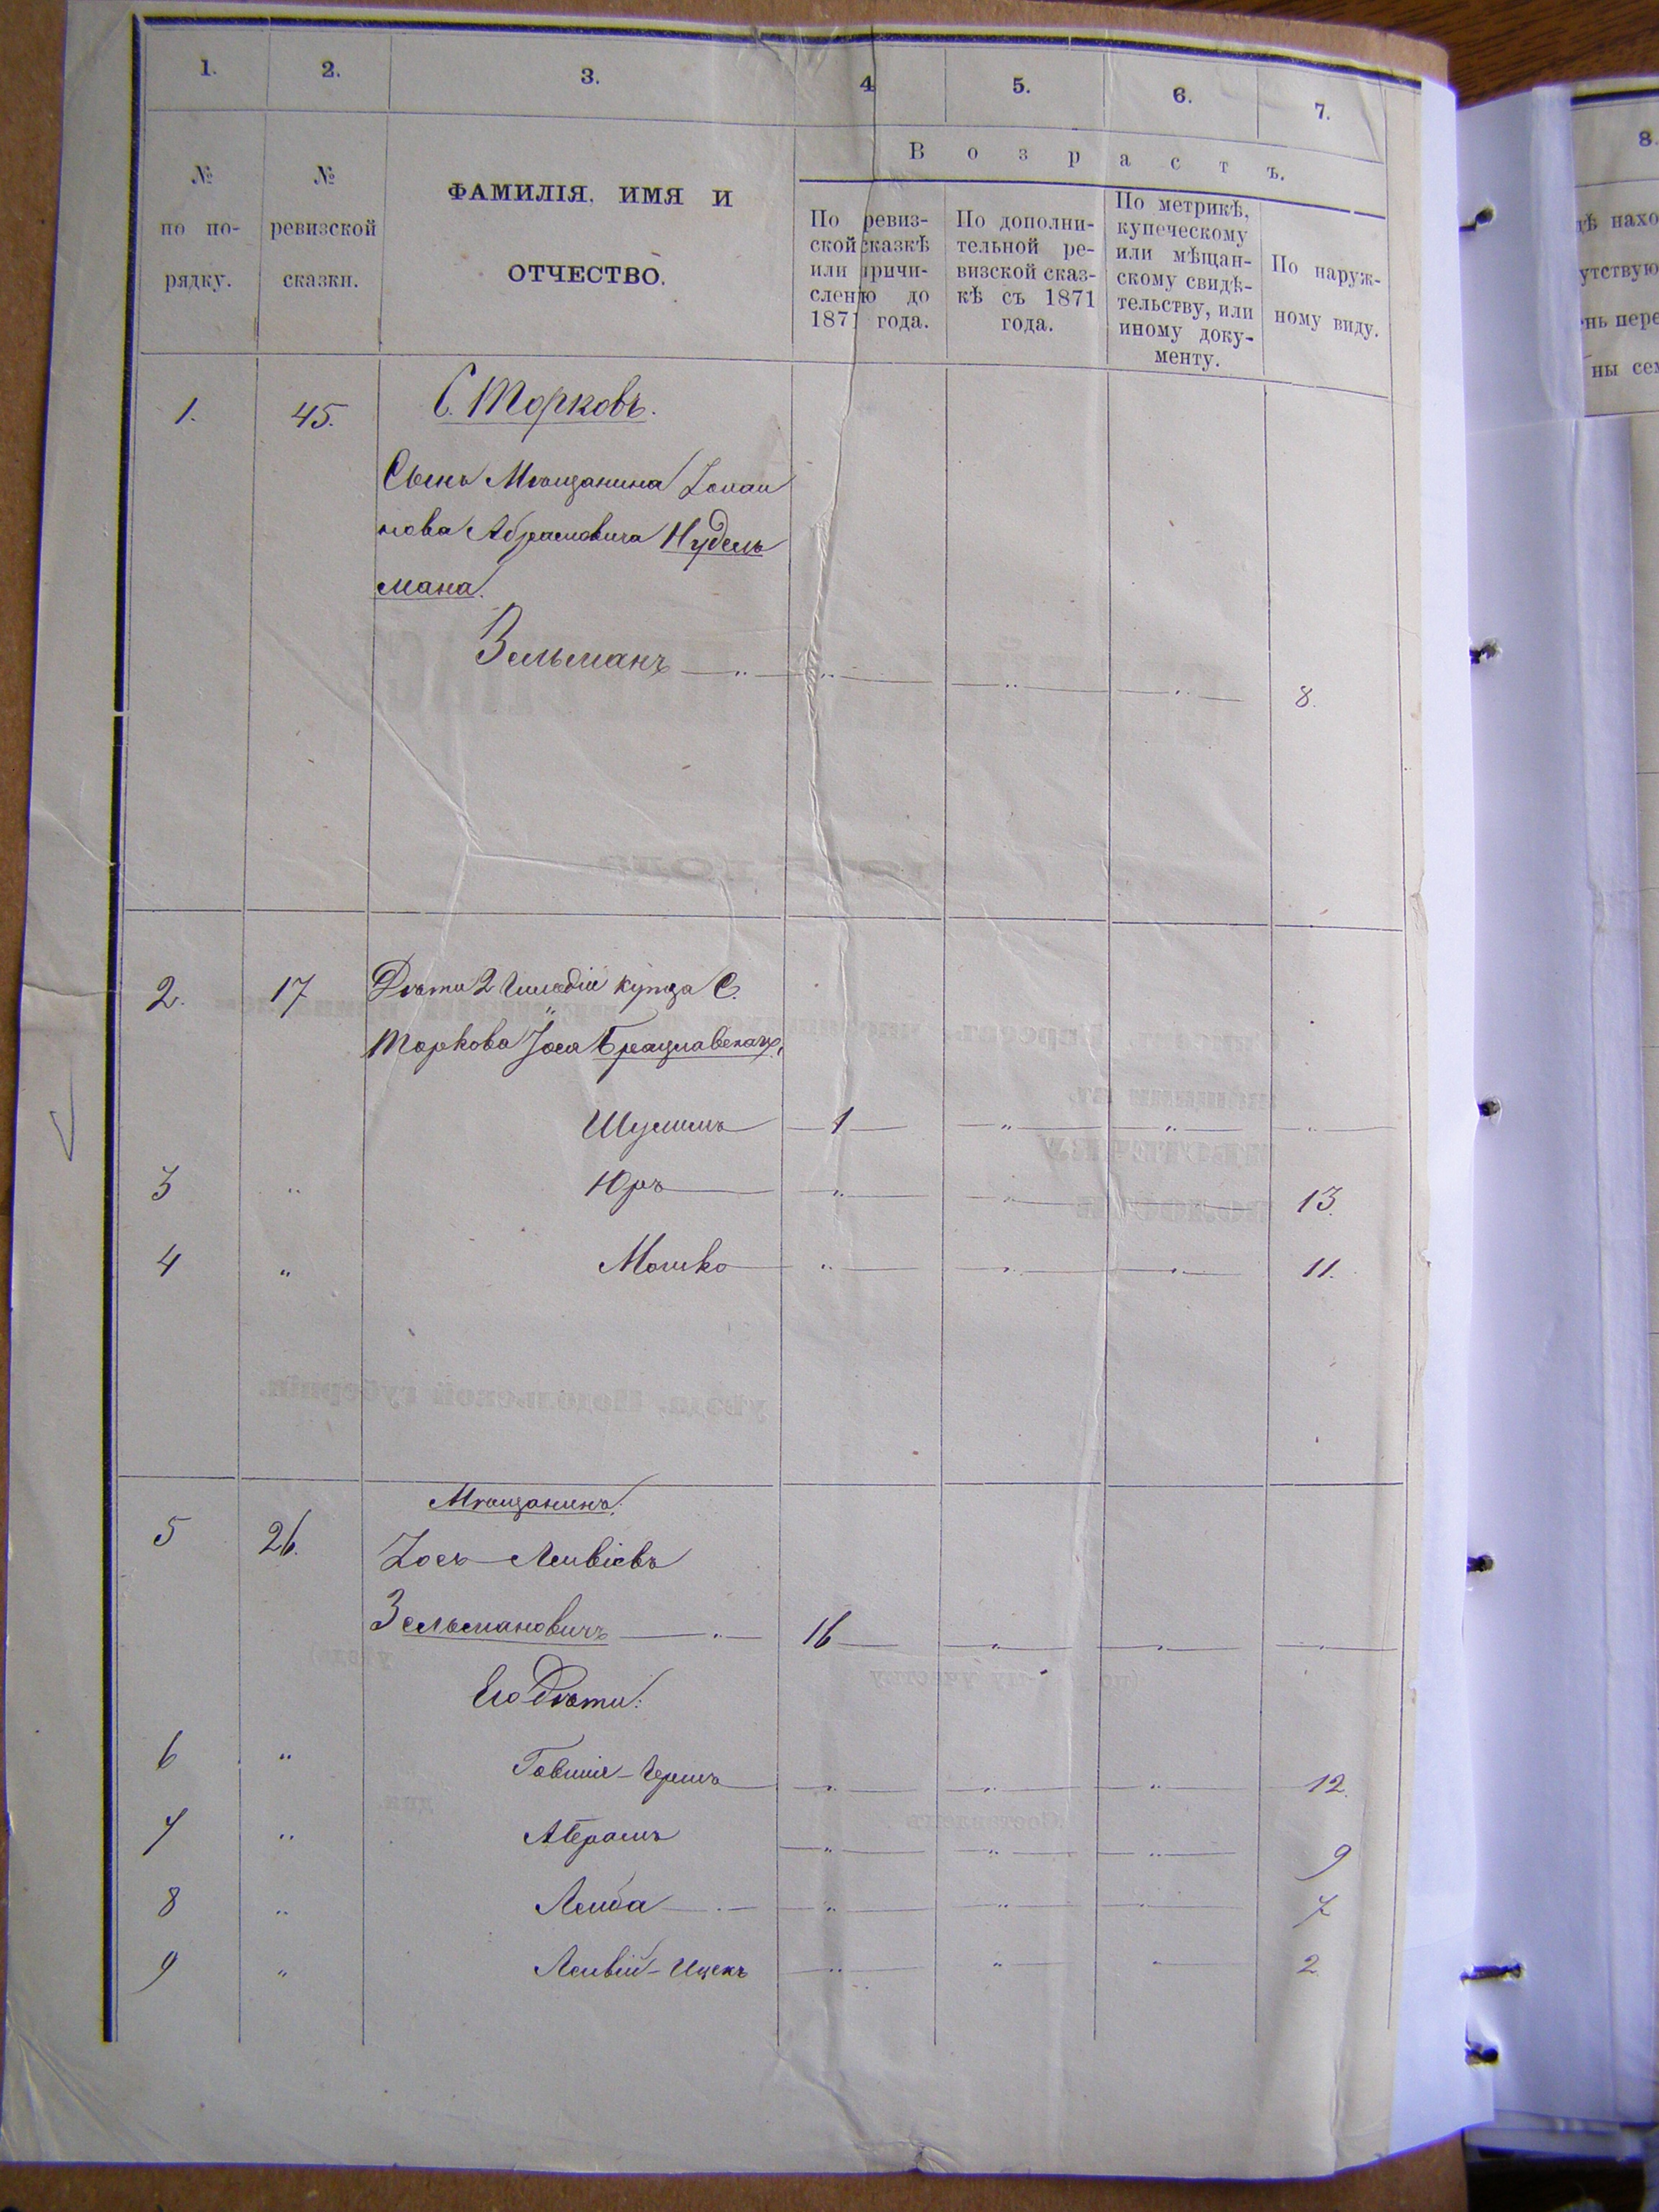 1. 2. 3. 4 5. 6. 7.
8.
В о з р а с т ъ.
№ по по-рядку.
№ ревизской сказки.
ФАМИЛІЯ, ИМЯ И
ОТЧЕСТВО.
По ревиз-
ской сказкѣ
или причи-
сленію до
1871 года.
По дополни-
тельной ре-
визской сказ-
кѣ съ 1871
года.
По метрикѣ,
купеческому
или мѣщан-
скому свидѣ-
тельству, или
иному доку-
менту.
По наруж-
ному виду.
1. 45. С. Торковъ.
Сынъ Мѣщанина
Абрамовича Нудель
мана.
Зельманъ — „ — „ — „ — „ — 8.
2. 17 Дѣти 2 Гильдіи купца С.
Торкова Іося Брацлавскаго,
Шулимъ — 1 — „ — „ — „ —
3 „ Юръ — „ — „ — 13.
4 „ Мошко — „ — „ — „ — 11.
Мѣщанинъ:
5 26. Іосъ Лейвіевъ
Зельмановичъ — „ — 16 — „ — „ — „ —
Его Дѣти:
6 „ Говшія-Гершъ — „ — „ — „ — 12.
7 „ Абрамъ — „ — „ — „ — 9
8 „ Лейба — „ — „ — „ — „ — 7
9 „ Лейвій-Ицекъ — „ — „ — „ — 2.